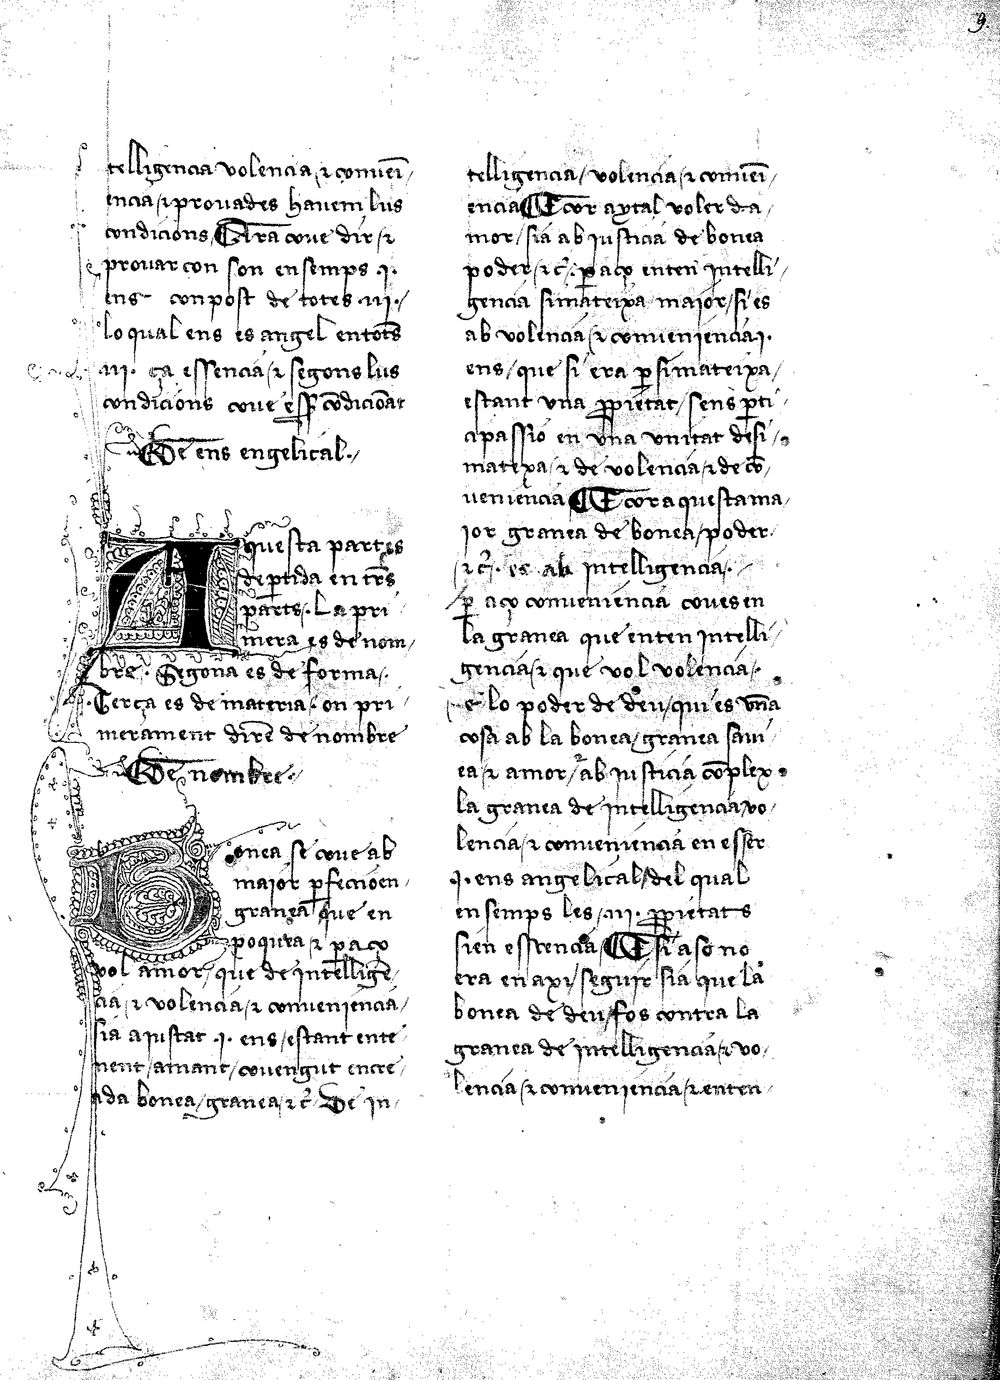 9.
telligencia volencia / ⁊ conveni /
encia / ⁊ provades havem lus
condicions / Ara cove dir / ⁊
provar con son ensemps .i.
ens conpost de totes .iii. /
lo qual ens es angel en totes
.iii. ça essencia / ⁊ segons lus
condicions cove esser condicionat
De ens engelical. /
Aquesta part es
departida en tres
parts. La pri
mera es de nom /
bre. Segona es de forma /.
Terça es de materia. on pri /
merament direm de nombre
De nombre. /
Bonea se cove ab
maior perfeccio en
granea que en
poquea ⁊ per aço
vol amor / que de intelligen /
cia / ⁊ volencia / ⁊ conveniencia /
sia aiustat .i. ens / estant ente /
nent / amant / covengut en cre /
ada bonea / granea / ⁊ c̃. De in /
telligencia / volencia / ⁊ conveni /
encia cor aytal voler da /
mor / sia ab iusticia de bonea
poder / ⁊ c̃. per aço enten intelli /
gencia si mateixa maior / si es
ab volencia / ⁊ conveniencia .i.
ens / que si era per si mateixa /
estant una proprietat / sens parti /
cipassio en una unitat de si /
matexa / ⁊ de volencia / ⁊ de con /
veniencia cor aquesta ma /
ior granea de bonea / poder
⁊ c̃. es ab intelligencia /.
per aço conveniencia coves en
la granea que enten intelli /
gencia / ⁊ que vol volencia /.
e lo poder de deu / qui es una
cosa ab la bonea / granea savi /
ea / ⁊ amor / ab iusticia complex
la granea de intelligencia / vo /
lencia / ⁊ conveniencia en esser
.i. ens angelical / del qual
ensemps les .iii. proprietats
sien essencia si aso no
era en axi / seguir sia que la
bonea de deu / fos contra la
granea de intelligencia / ⁊ vo /
lencia / ⁊ conveniencia / ⁊ enten /